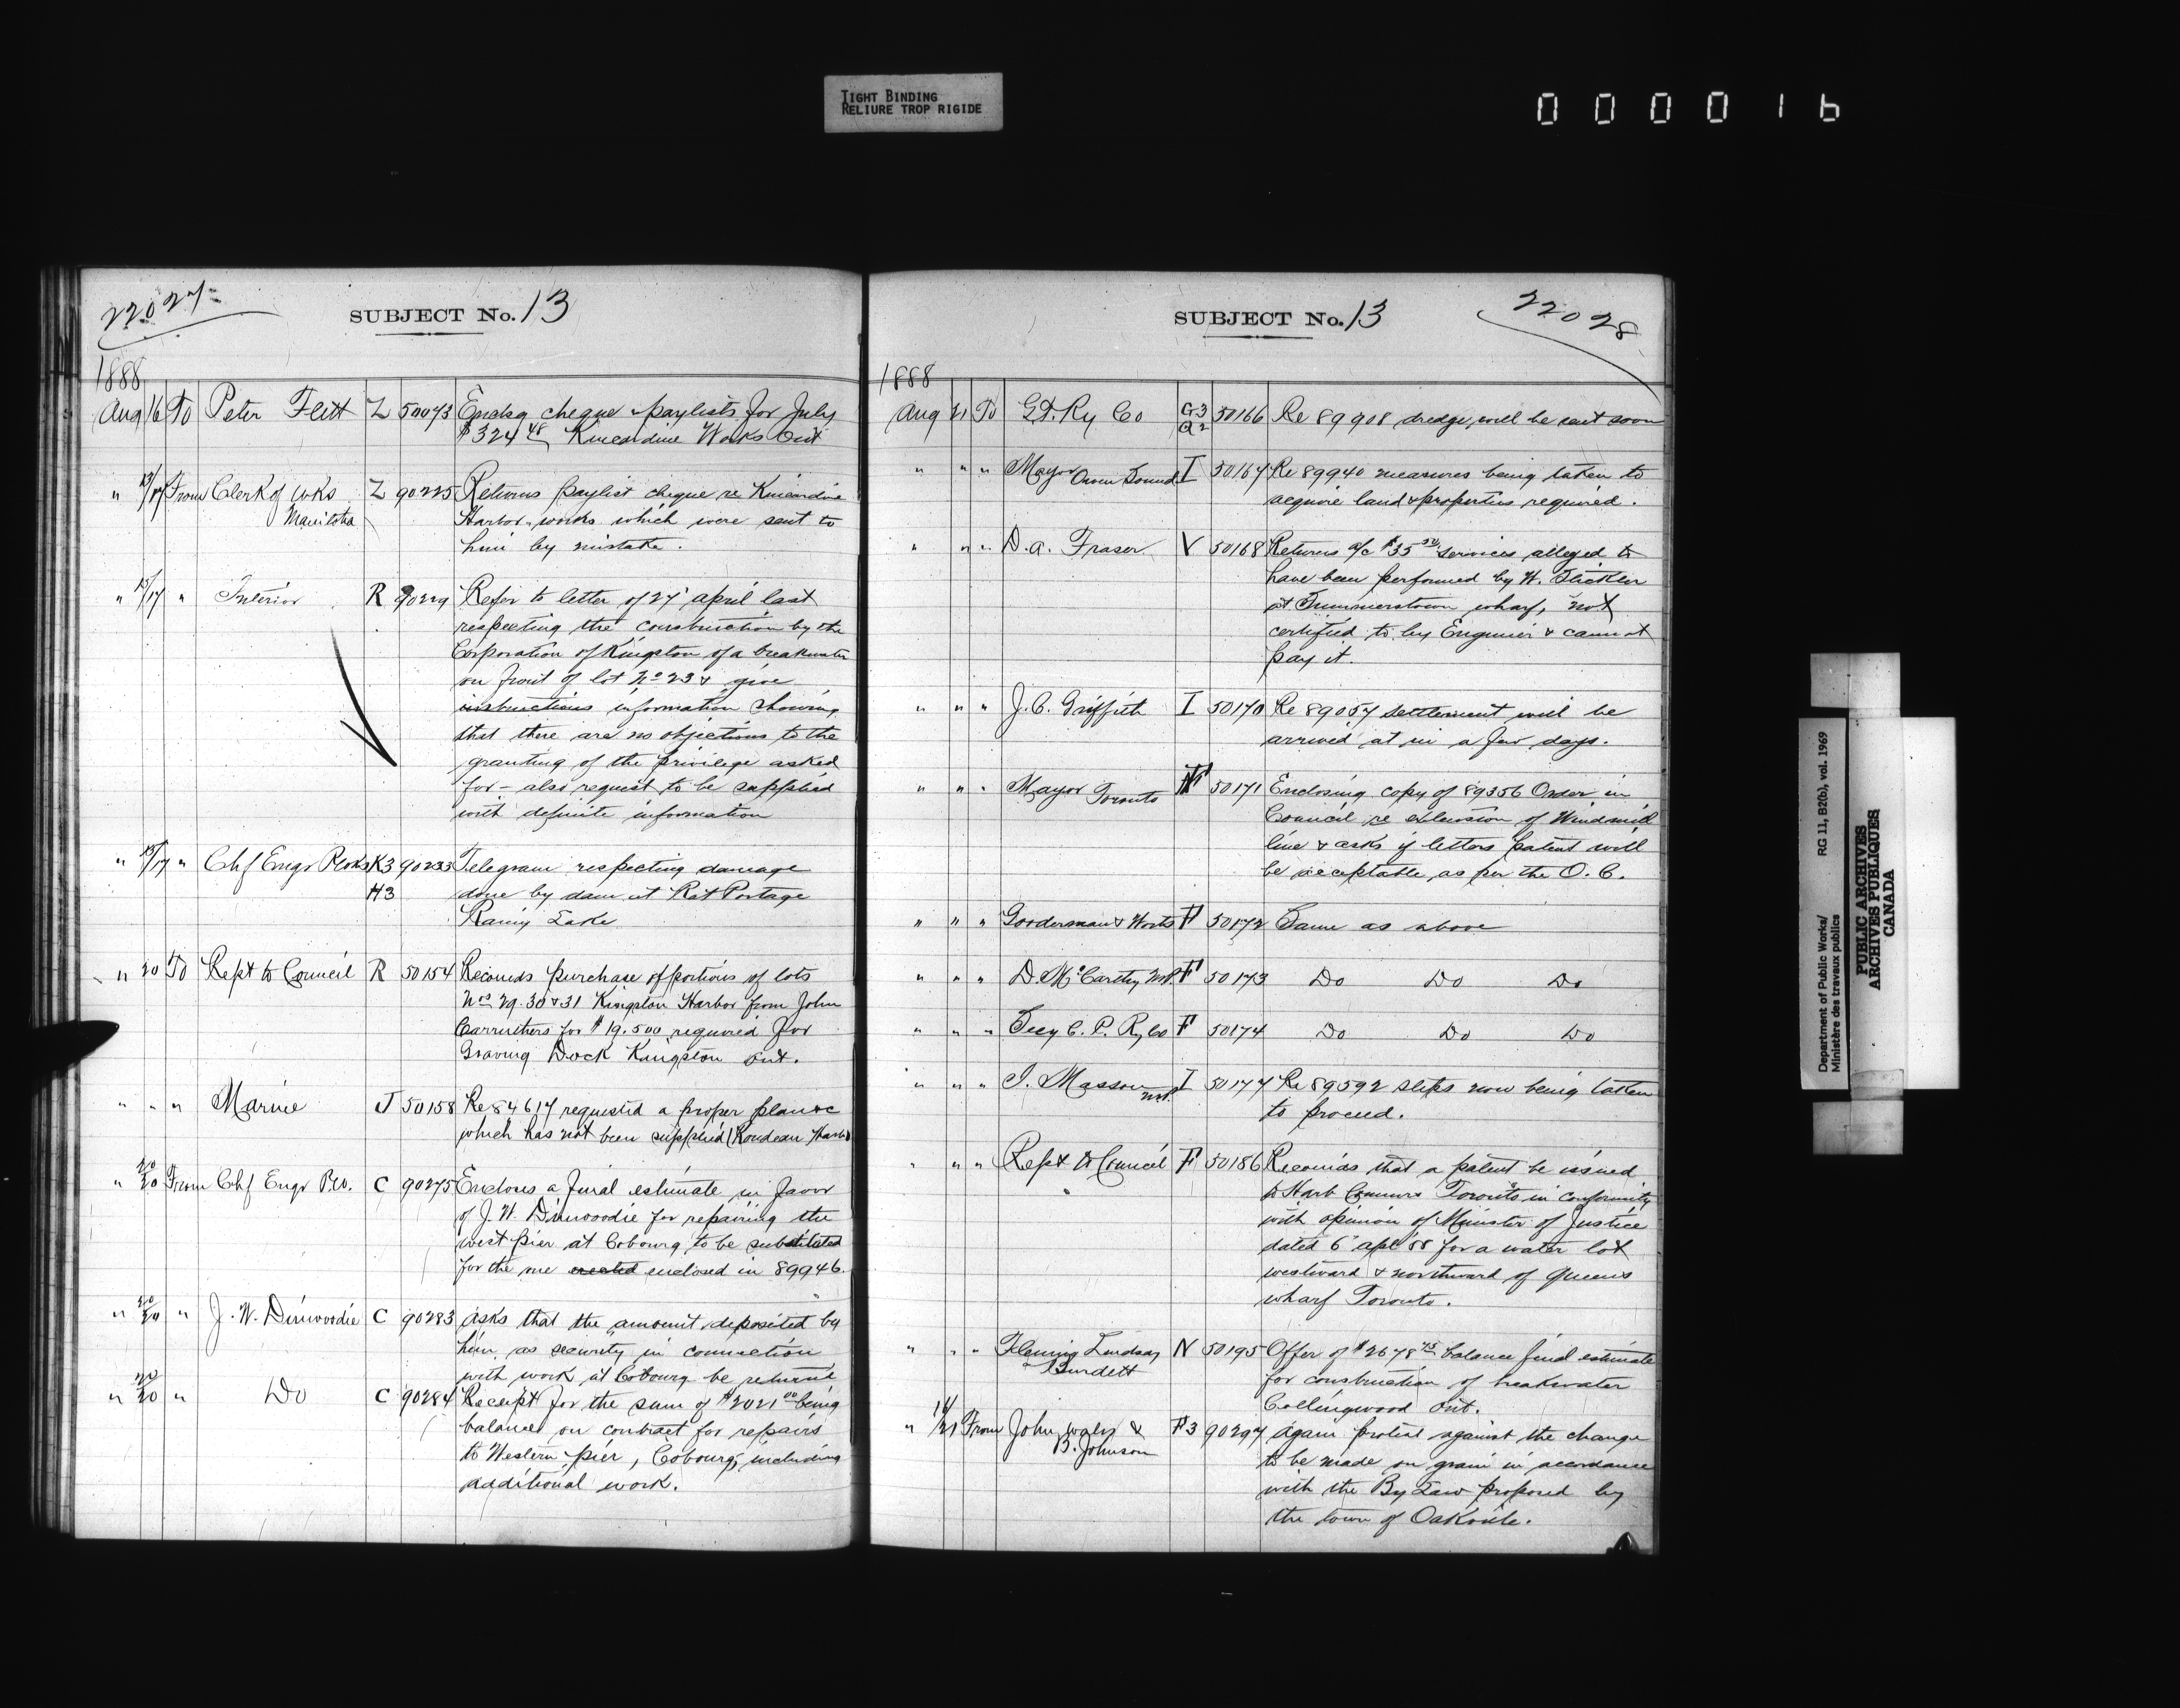 TIGHT BINDING
RELIURE TROP RIGIDE
000016
22027
SUBJECT No. 13
1888
Aug 16 To Peter Flett Z 50073 Encldg cheque & paylists for July
$324 48 Kincardine Works Ont
" 13/17 From Clerk of Wks Z 90225 Returns paylist cheque re Kincardine
Manitoba Harbor works which were sent to
him by mistake.
" 15/17 " Interior R 90229 Refer to letter of 27 April last
respecting the construction by the
Corporation of Kingston of a breakwater
on front of lot No 23 & give
instructions information showing
that there are no objections to the
granting of the privilege asked
for - also request to be supplied
with definite information
" 15/17 " Chf Engr PWks K3 90233 Telegram respecting damage
H3 done by dam at Rat Portage
Rainy Lake
" 20 To Rept to Council R 50154 Recomds purchase of portions of lots
Nos 29. 30 & 31 Kingston Harbor from John
Carruthers for $19,500 required for
Graving Dock Kingston Ont.
" " " Marine J 50158 Re 84617 requested a proper plan &c
which has not been supplied (Rondeau Harbr)
" 20/20 From Chf Engr P.W. C 90275 Encloses a final estimate in favor
of J. W. Dinwoodie for repairing the
west pier at Cobourg to be substituted
for the one enclosed in 89946.
" 20/20 " J. W. Dinwoodie C 90283 Asks that the amount deposited by
him, as security in connection
with work at Cobourg be returned
" 20/20 " Do C 90284 Receipt for the sum of $2021 00 being
balance on contract for repairs
to Western pier, Cobourg, including
additional work.
22028
SUBJECT No. 13
1888
Aug 21 To G.T. Ry Co G3 50166 Re 89908 dredge will be sent soon
Q2
" " " Mayor Owen Sound I 50167 Re 89940 measures being taken to
acquire land & properties required.
" " " D. A. Fraser V 50168 Returns a/c $35 50 services alleged to
have been performed by H. Stickler
at Summerstown wharf, not
certified to by Engineer & cannot
pay it.
" " " J. C. Griffith I 50170 Re 89057 settlement will be
arrived at in a few days.
" " " Mayor Toronto F 50171 Enclosing copy of 89356 Order in
Council re extension of Windmill
line & asks if letters patent will
be acceptable as per the O. C.
" " " Gooderman & Worts F 50172 Same as above
" " " D. McCarthy M.P. F 50173 Do Do Do
" " " Secy C. P. Ry Co F 50174 Do Do Do
" " " J. Masson M.P. I 50177 Re 89592 steps now being taken
to proceed.
" " " Rept to Council F 50186 Recomds that a patent be issued
to Harb Commrs Toronto in conformity
with opinion of Minister of Justice
dated 6 Apl '88 for a water lot
westward & northward of Queens
wharf Toronto.
" " " Fleming Lindsay N 50195 Offer of $2678 75 balance final estimate
Burdett for construction of breakwater
Collingwood Ont.
" 14/21 From John & F3 90297 Again protest against the change
B. Johnson to be made on grain in accordance
with the By Law proposed by
the town of Oakville.
Department of Public Works/ RG 11, B2(b), vol. 1969
Ministère des travaux publics
PUBLIC ARCHIVES
ARCHIVES PUBLIQUES
CANADA